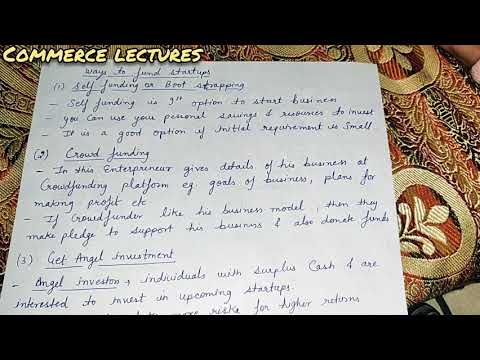 COMMERCE LECTURES
Ways to fund startups
(1) Self funding or Boot strapping
- Self funding is 1st option to start business
- You Can use your personal savings & resources to invest
- It is a good option if initial requirement is Small
(2) Crowd funding
- In this Enterpreneur gives details of his business at
Crowdfunding platform eg. goals of business, plans for
making profit etc
- If Crowdfunder like his business model, then they
make pledge to support his business & also donate funds
(3) Get Angel investment
- Angel investors, individuals with surplus Cash & are
interested to invest in upcoming startups.
more risks for higher returns